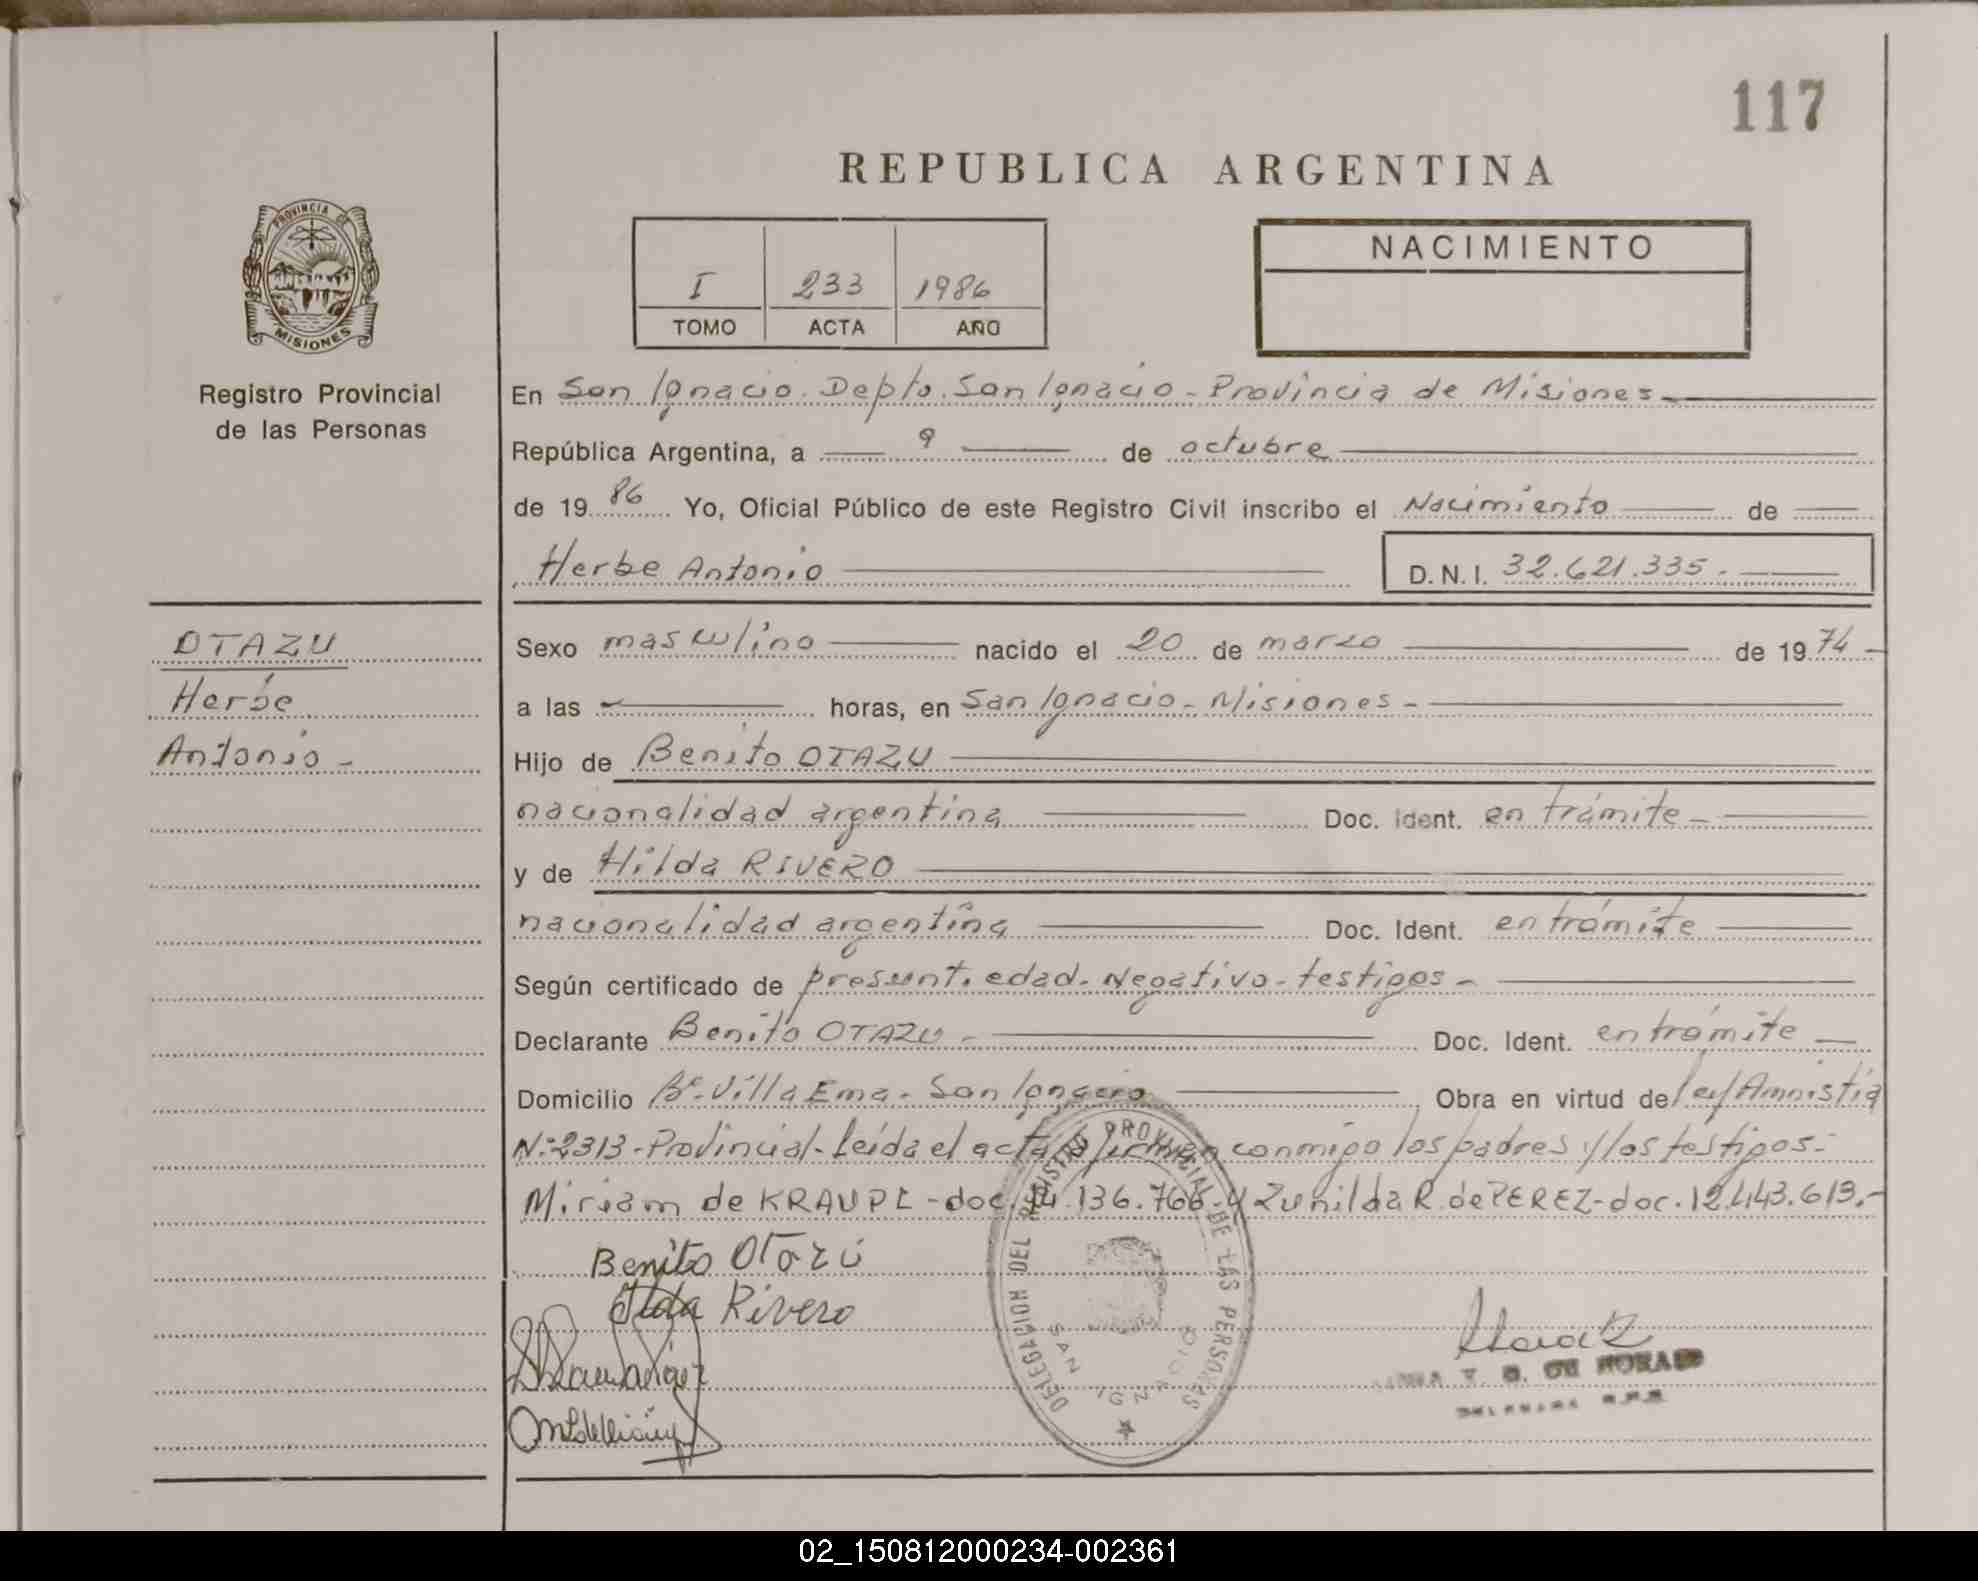 117
REPUBLICA ARGENTINA
PROVINCIA DE
MISIONES
Registro Provincial
de las Personas
I 233 1986
TOMO ACTA AÑO
NACIMIENTO
En San Ignacio. Depto. San Ignacio - Provincia de Misiones
República Argentina, a 9 de octubre
de 19 86 Yo, Oficial Público de este Registro Civil inscribo el Nacimiento de
Herbe Antonio D.N.I. 32.621.335.
OTAZU
Herbe
Antonio -
Sexo masculino nacido el 20 de marzo de 19 74 -
a las horas, en San Ignacio - Misiones -
Hijo de Benito OTAZU
nacionalidad argentina Doc. Ident. en trámite -
y de Hilda RIVERO
nacionalidad argentina Doc. Ident. en trámite
Según certificado de presunt. edad - Negativo - testigos -
Declarante Benito OTAZU - Doc. Ident. en trámite
Domicilio Bº Villa Ema - San Ignacio Obra en virtud de ley Amnistía
Nº 2313 - Provincial - Leída el acta firman conmigo los padres y los testigos -
Miriam de KRAUPL - doc. 14.136.766 y Zunilda R. de PEREZ - doc. 12.443.613.-
Benito Otazú
Ilda Rivero
DELEGACION DEL REGISTRO PROVINCIAL DE LAS PERSONAS
SAN IGNACIO
V. B. DE
02_150812000234-002361